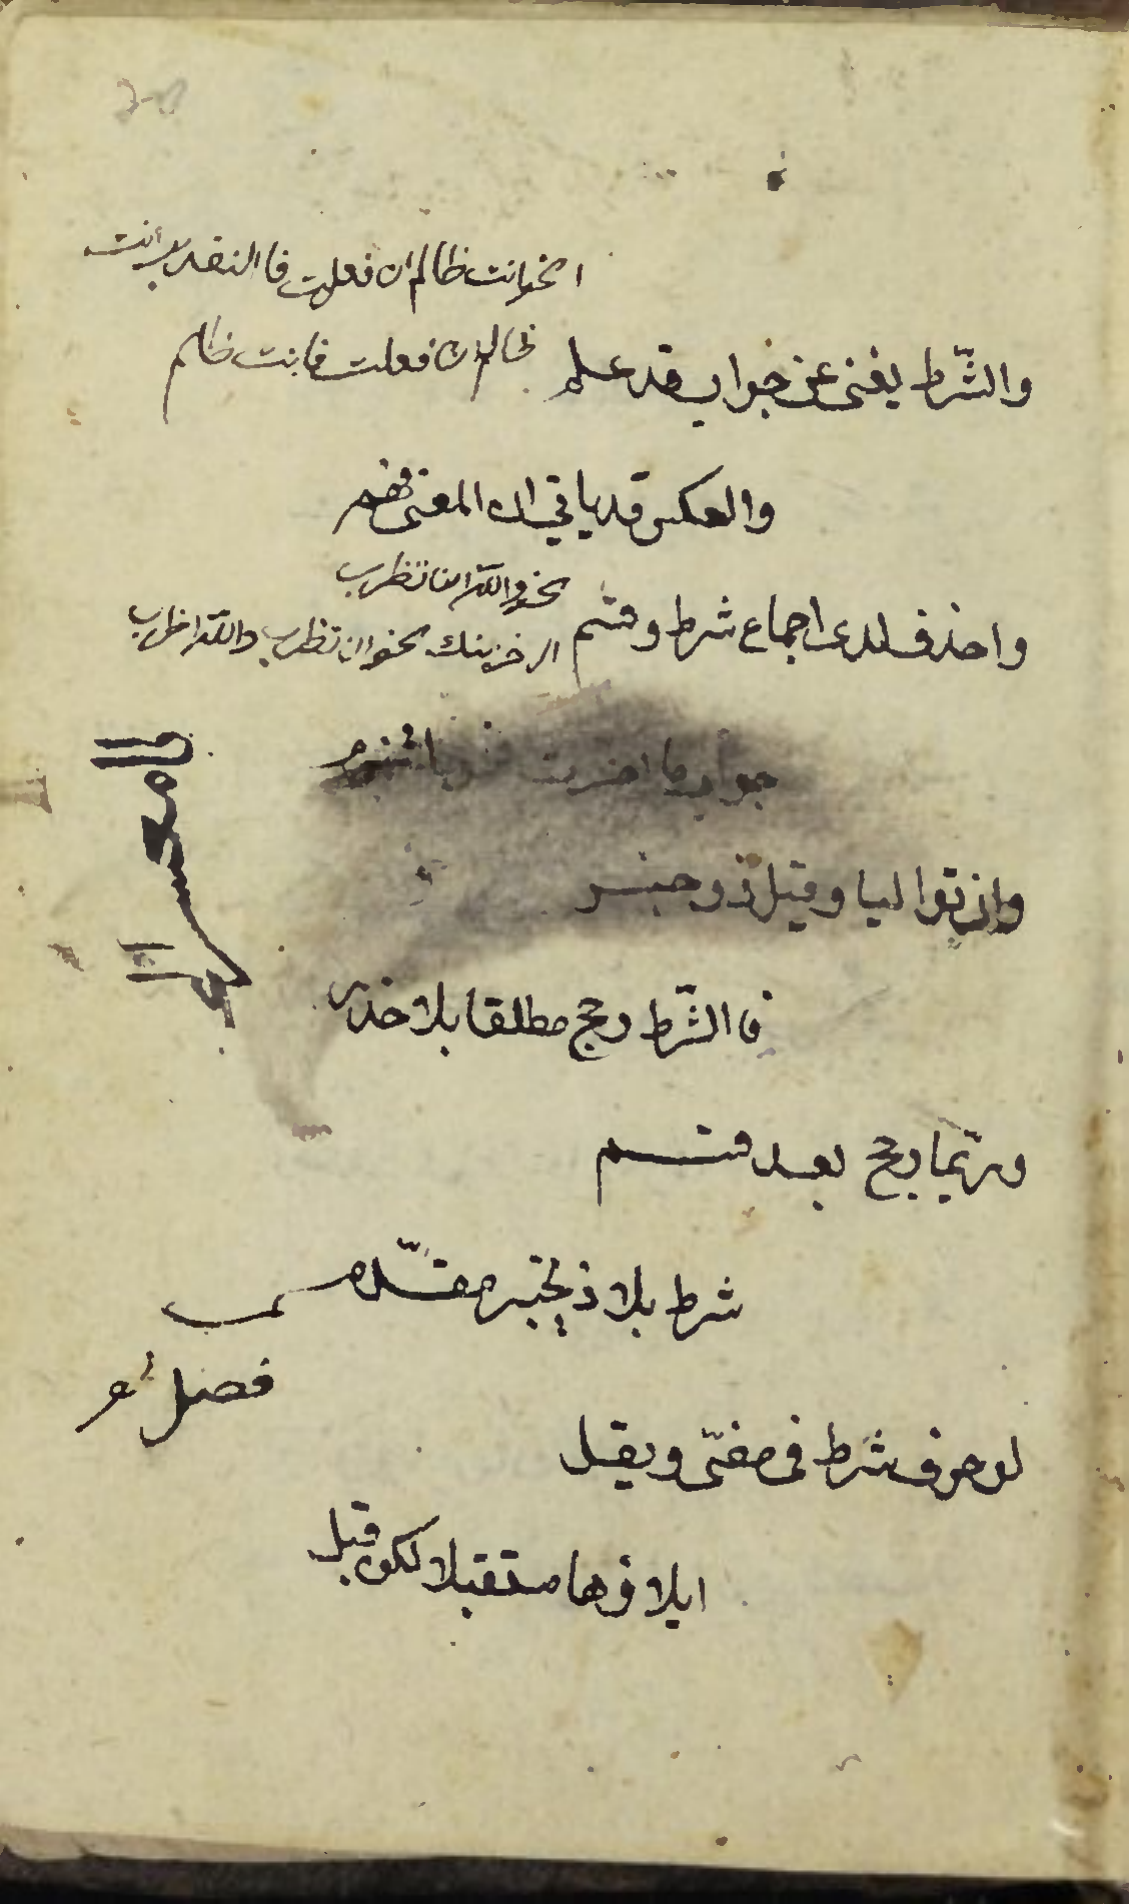 نحو انت ظالم ان فعلت فا التقدير انت
والشّرط يغنى عن جواب قد علم ظالم ان فعلت فانت ظالم
والعكس قد ياتي ان المعنى فهم
نحو والله ان تظرب
واحذف لدى اجماع شرط وقسم نحو ان تظرب والله اظرب
جواب ما اخرت
وان توا ليا وقبل ذو خبر
فا الشّرط رجح مطلقا بلا حذر
وربّما رجح بعد قسم
شرط بلا ذي خبر مقدّم
فصل لو
لو حرف شرط فى مضّى ويقل
ايلاؤها مستقبلا لكن قبل